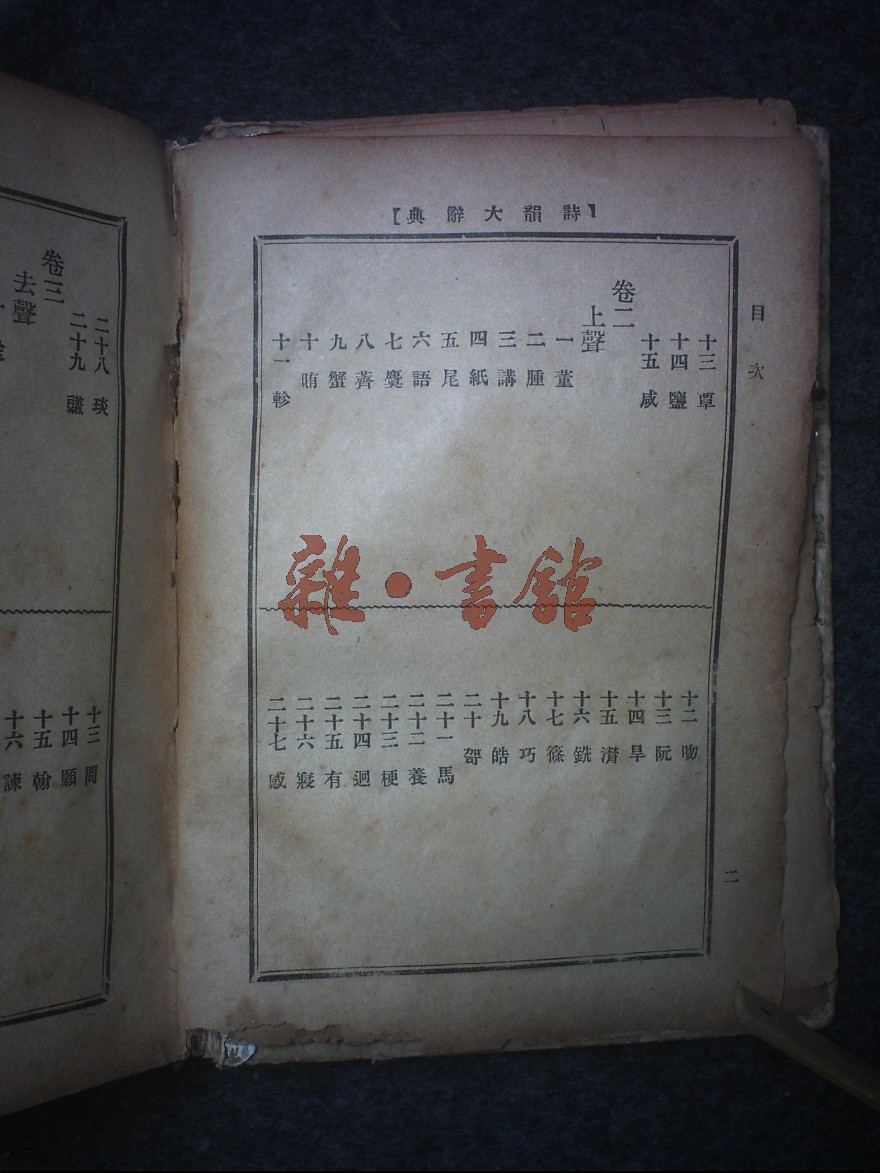 【詩韻大辭典】
目次
十三 覃
十四 鹽
十五 咸
卷二
上聲
一 董
二 腫
三 講
四 紙
五 尾
六 語
七 麌
八 薺
九 蟹
十 賄
十一 軫
十二 吻
十三 阮
十四 旱
十五 潸
十六 銑
十七 篠
十八 巧
十九 皓
二十 哿
二十一 馬
二十二 養
二十三 梗
二十四 迥
二十五 有
二十六 寢
二十七 感
二
二十八 琰
二十九 豏
卷三
去聲
十三 問
十四 願
十五 翰
十六 諫
雜·書館